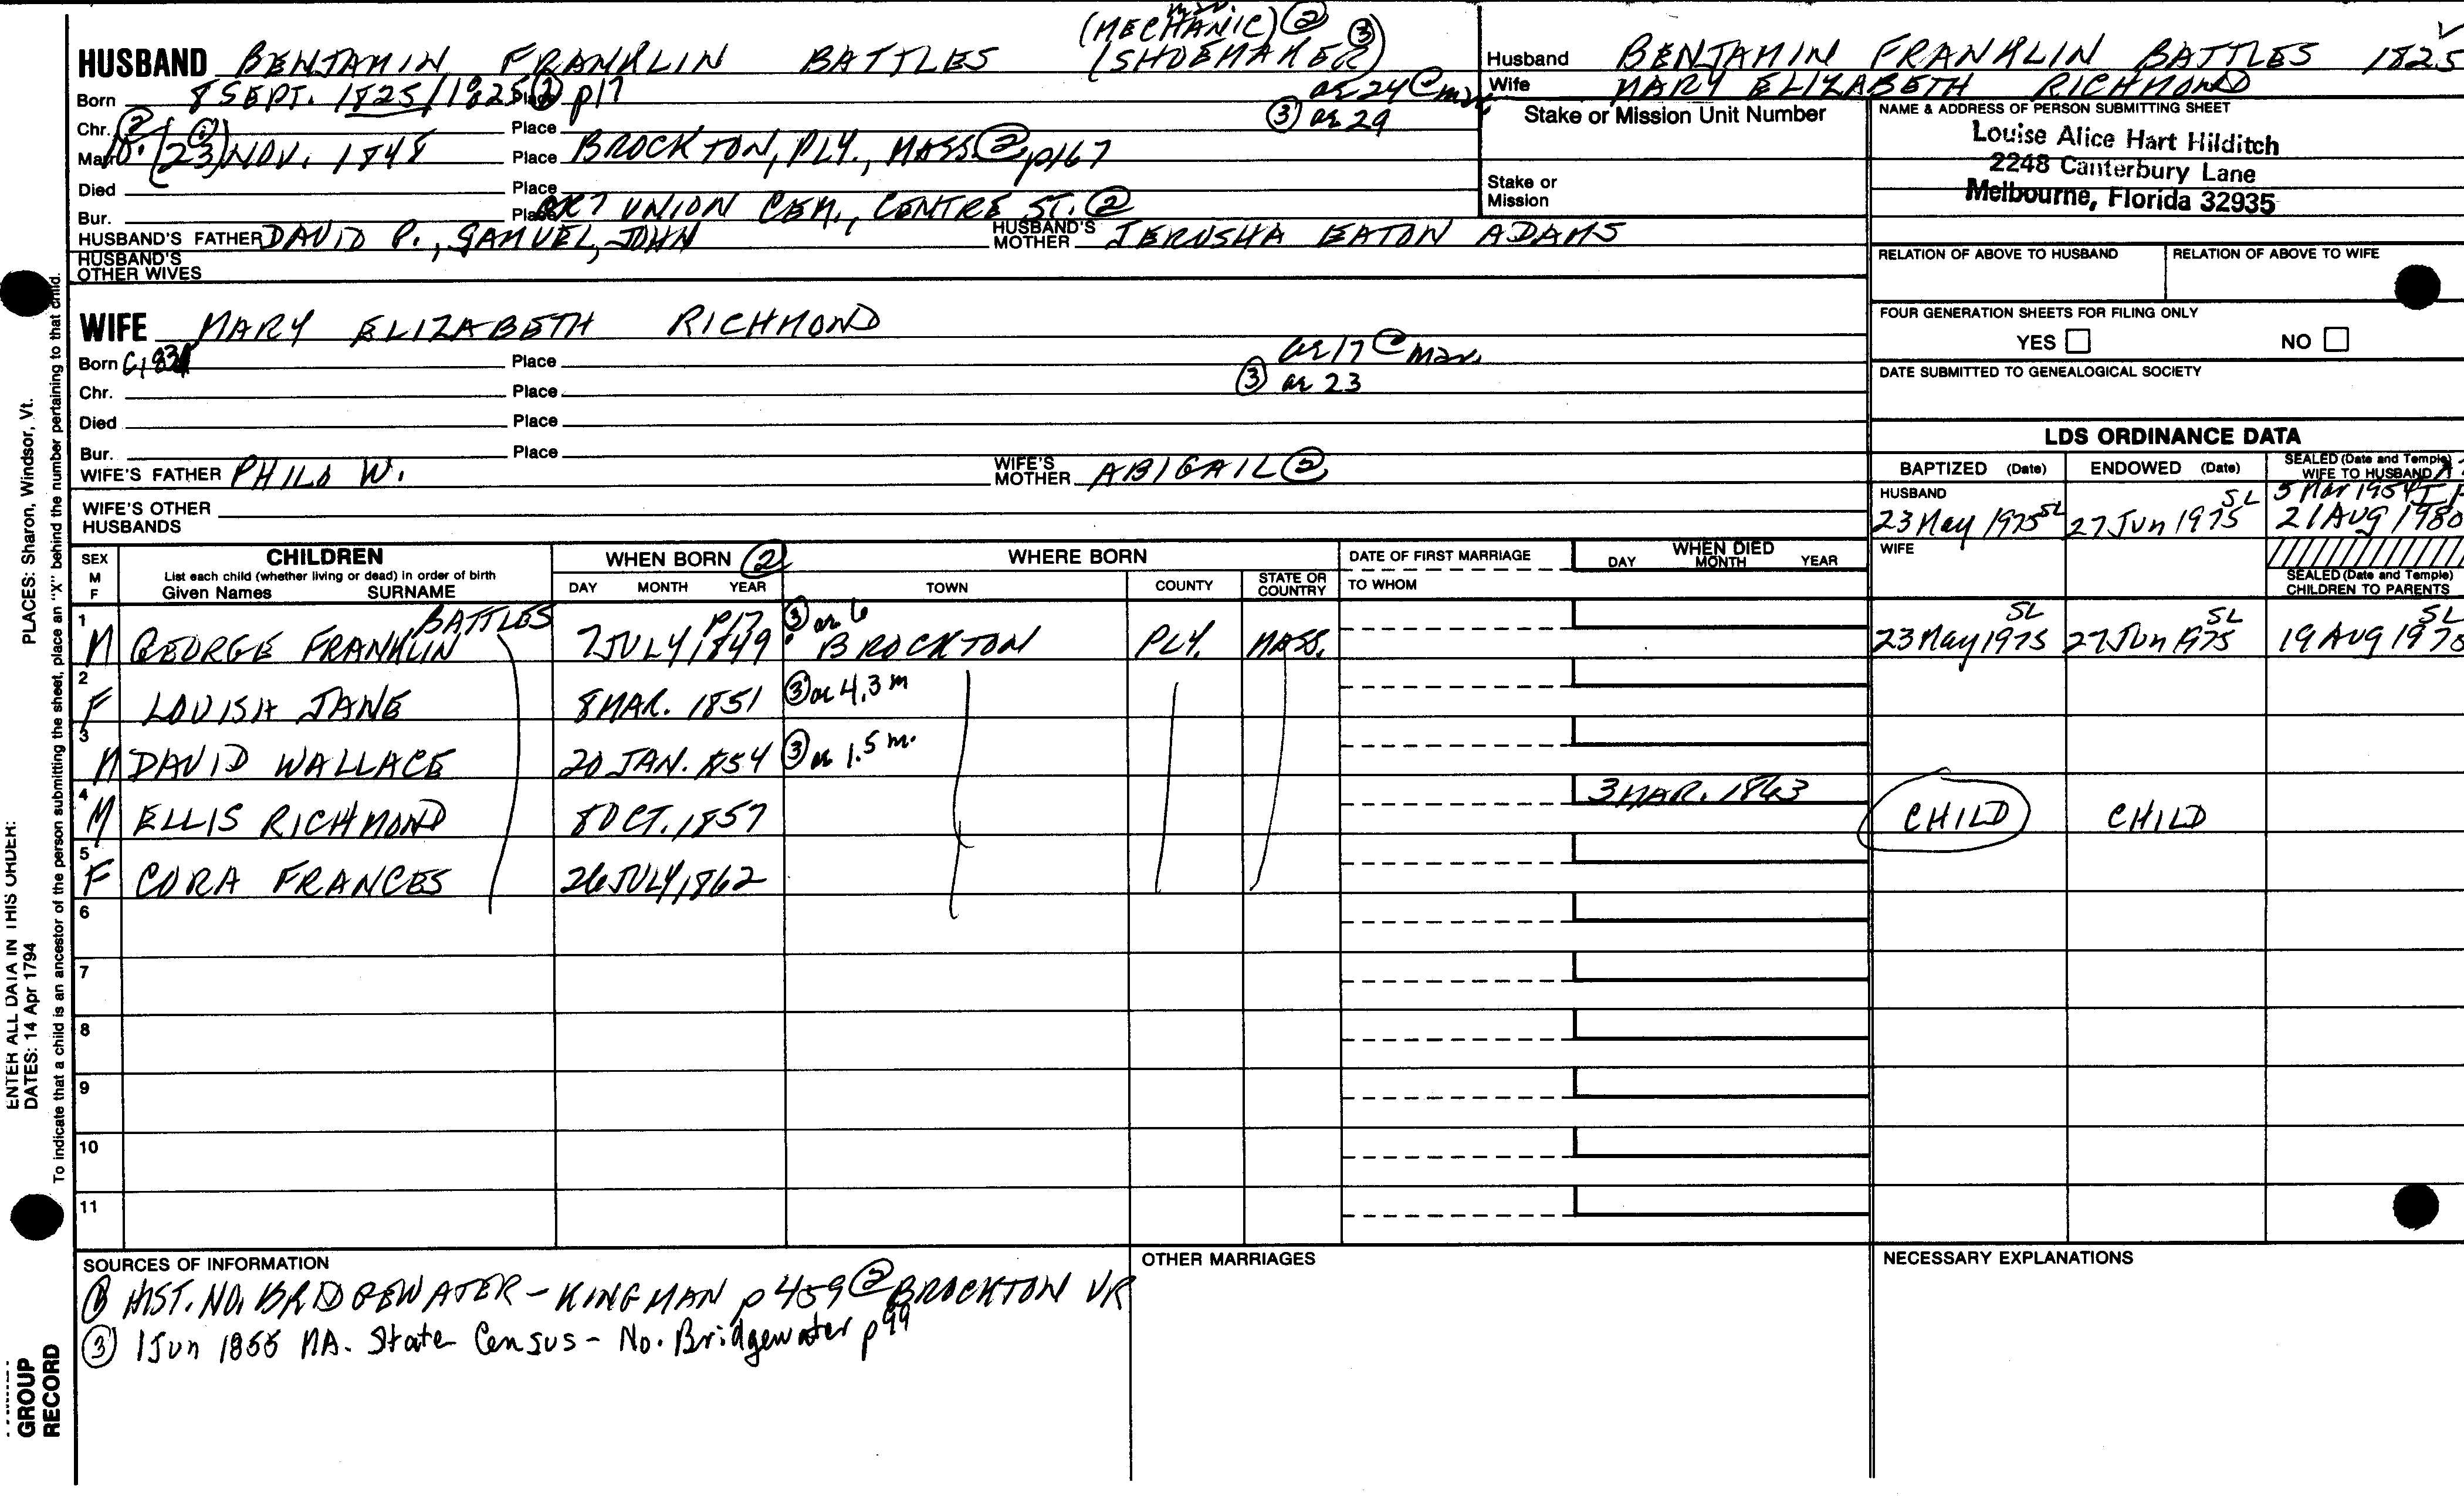 mar.
(MECHANIC) ② ③
HUSBAND BENJAMIN FRANKLIN BATTLES (SHOEMAKER)
Born 8 SEPT. 1825/1825 ② p17 Place ae 24 @ mar.
Chr. Place ③ ae 29
② ①
Marr. (23) NOV. 1848 Place BROCKTON, PLY., MASS. ② p167
Died Place
Bur. Place UNION CEM., CENTRE ST. ②
HUSBAND'S FATHER DAVID P., SAMUEL, JOHN HUSBAND'S MOTHER JERUSHA EATON ADAMS
HUSBAND'S OTHER WIVES
WIFE MARY ELIZABETH RICHMOND
Born Place ae 17 @ mar.
Chr. Place ③ ae 23
Died Place
Bur. Place
WIFE'S FATHER PHILO W. WIFE'S MOTHER ABIGAIL ②
WIFE'S OTHER HUSBANDS
Husband BENJAMIN FRANKLIN BATTLES 1825
Wife MARY ELIZABETH RICHMOND
Stake or Mission Unit Number
Stake or Mission
NAME & ADDRESS OF PERSON SUBMITTING SHEET
Louise Alice Hart Hilditch
2248 Canterbury Lane
Melbourne, Florida 32935
RELATION OF ABOVE TO HUSBAND RELATION OF ABOVE TO WIFE
FOUR GENERATION SHEETS FOR FILING ONLY
YES NO
DATE SUBMITTED TO GENEALOGICAL SOCIETY
LDS ORDINANCE DATA
BAPTIZED (Date) ENDOWED (Date) SEALED (Date and Temple) WIFE TO HUSBAND
HUSBAND SL 5 Mar 1954
23 May 1975 SL 27 Jun 1975 21 AUG 1980
WIFE
SEALED (Date and Temple) CHILDREN TO PARENTS
SEX M F CHILDREN WHEN BORN ② WHERE BORN DATE OF FIRST MARRIAGE WHEN DIED
List each child (whether living or dead) in order of birth
Given Names SURNAME DAY MONTH YEAR TOWN COUNTY STATE OR COUNTRY TO WHOM DAY MONTH YEAR
1 BATTLES p17 ③ ae 6 SL SL SL
M GEORGE FRANKLIN 7 JULY, 1849 BROCKTON PLY. MASS. 23 May 1975 27 Jun 1975 19 AUG 1978
2
F LOUISA JANE 8 MAR. 1851 ③ ae 4, 3 m
3
M DAVID WALLACE 20 JAN. 1854 ③ ae 1. 5 m.
4 3 MAR. 1863
M ELLIS RICHMOND 8 OCT. 1857 CHILD CHILD
5
F CORA FRANCES 26 JULY, 1862
6
7
8
9
10
11
SOURCES OF INFORMATION
① HIST. NO. BRIDGEWATER - KINGMAN p 459 ② BROCKTON VR
③ 1 Jun 1855 MA. State Census - No. Bridgewater p 99
OTHER MARRIAGES
NECESSARY EXPLANATIONS
PLACES: Sharon, Windsor, Vt.
ENTER ALL DATA IN THIS ORDER:
DATES: 14 Apr 1794
To indicate that a child is an ancestor of the person submitting the sheet, place an "X" behind the number pertaining to that child.
GROUP
RECORD